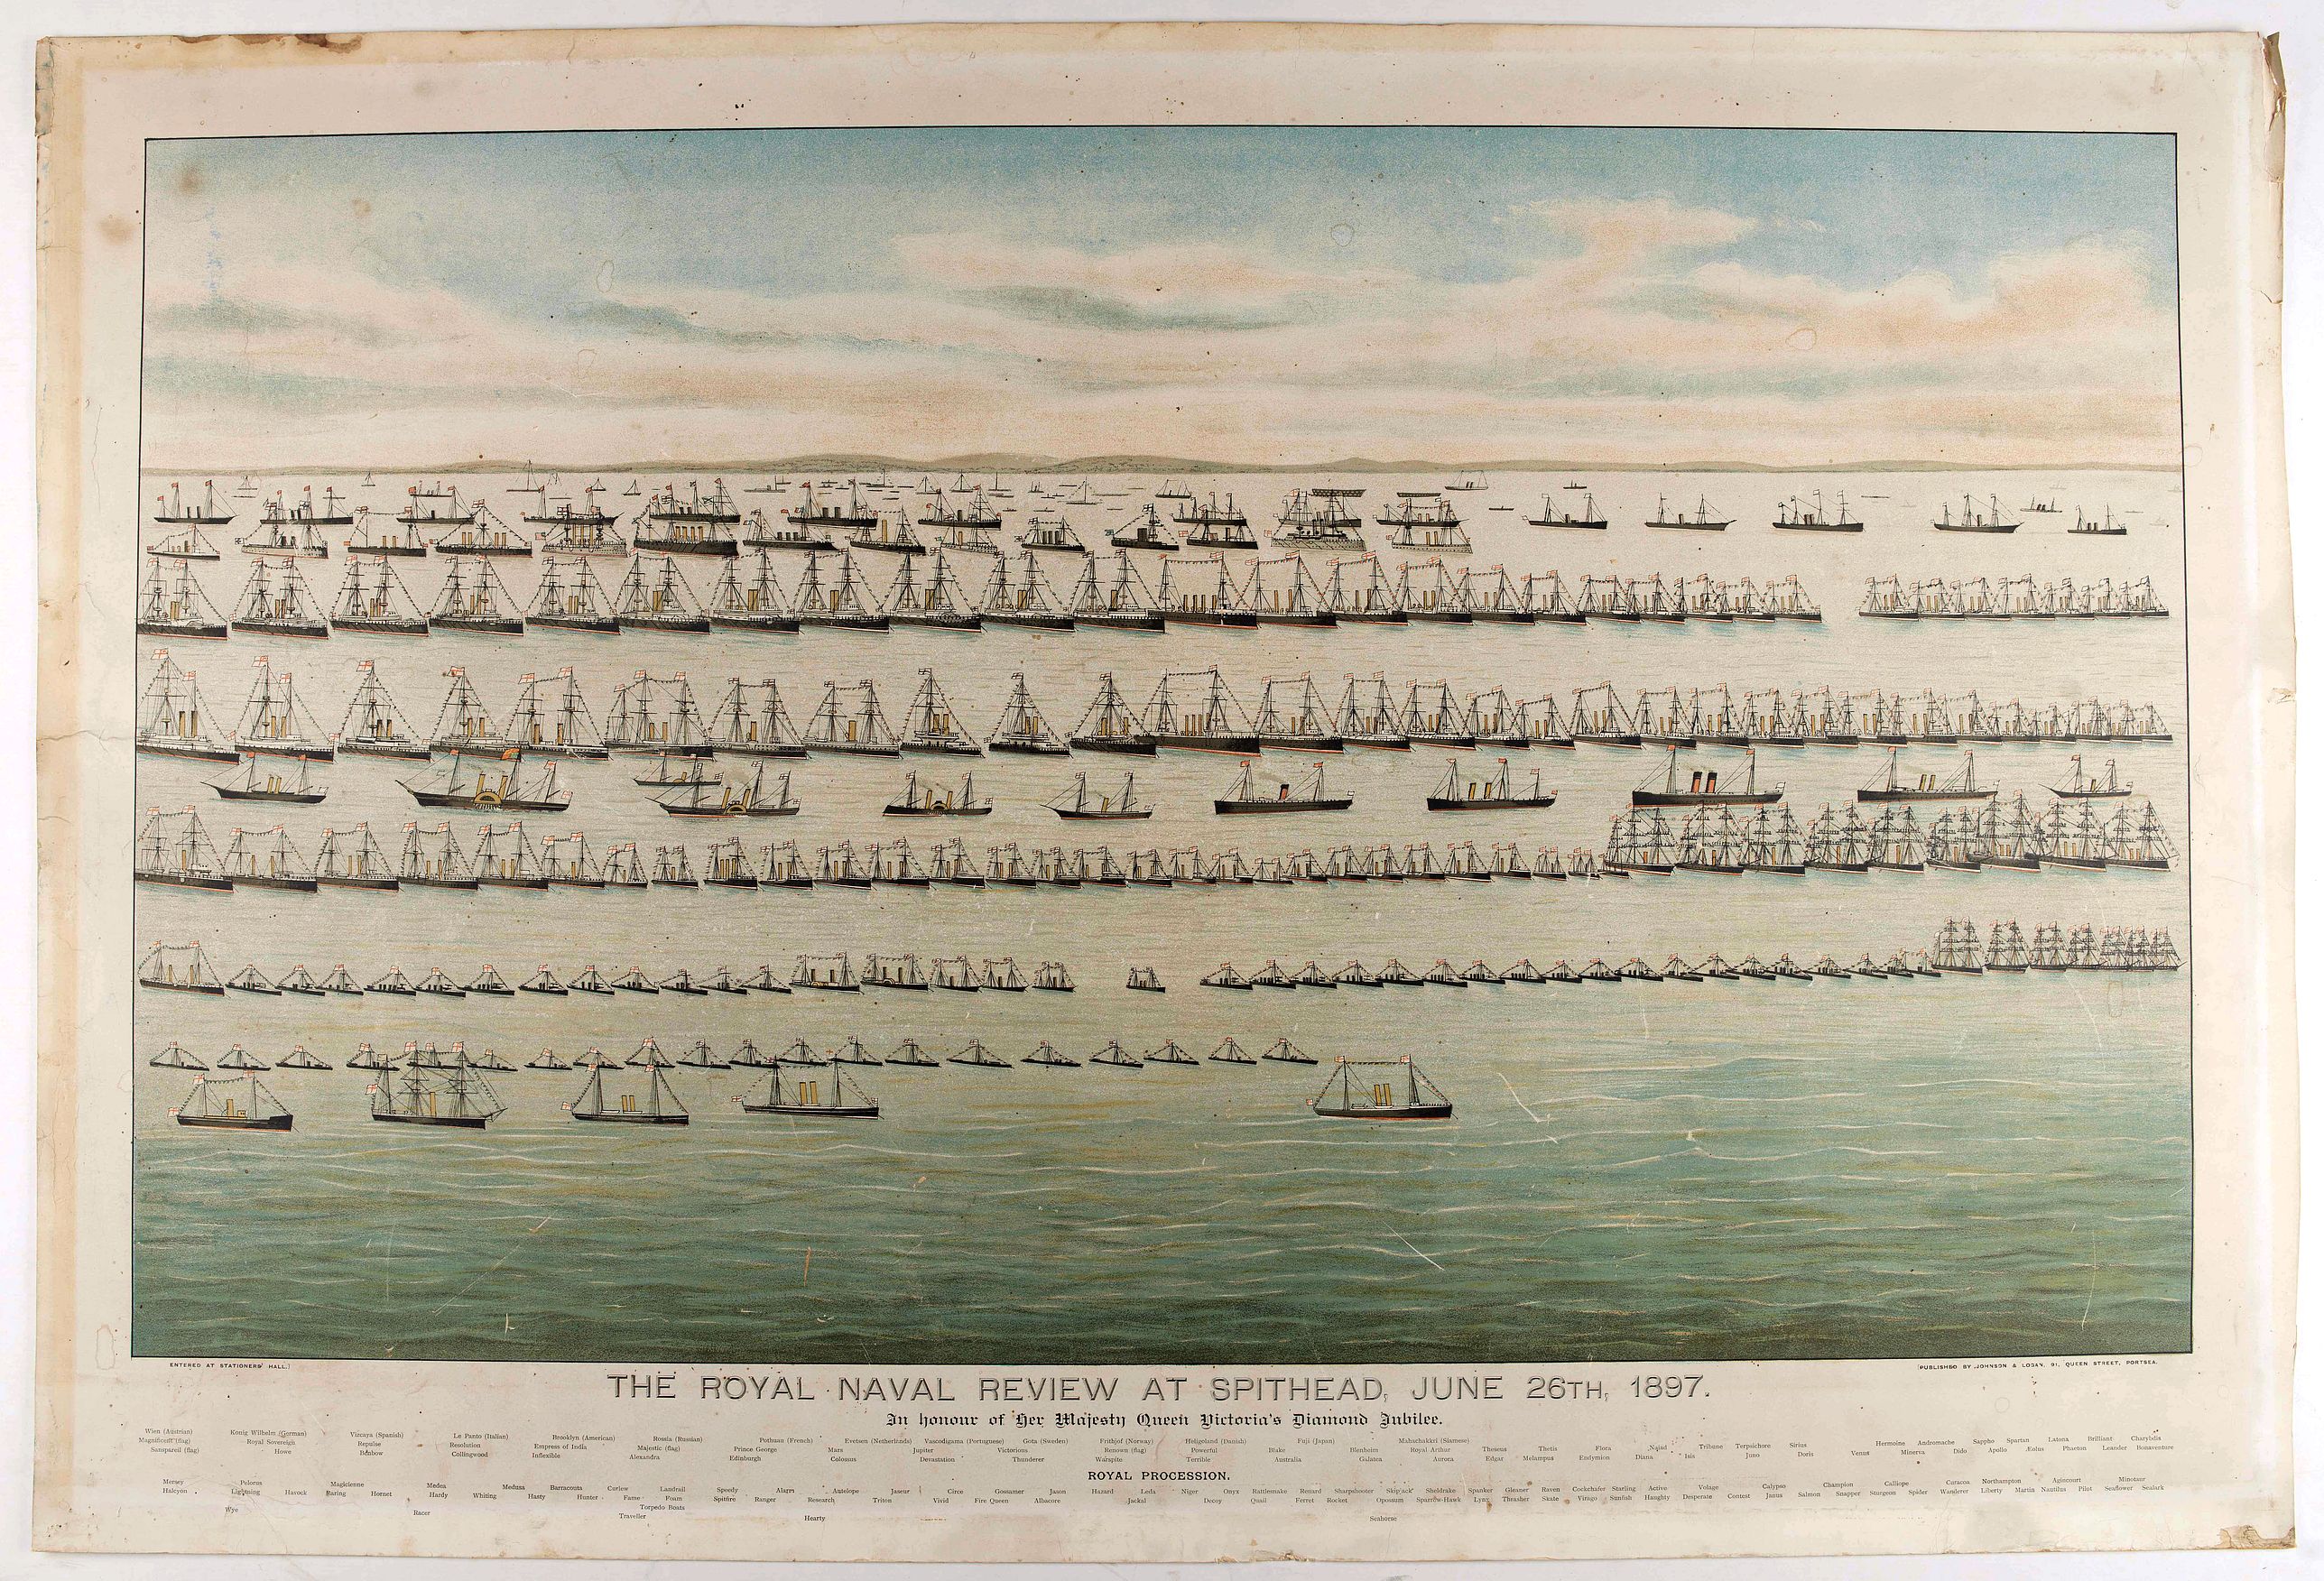 ENTERED AT STATIONERS' HALL.]
[PUBLISHED BY JOHNSON & LOGAN, 91, QUEEN STREET, PORTSEA.
THE ROYAL NAVAL REVIEW AT SPITHEAD, JUNE 26TH, 1897.
In honour of Her Majesty Queen Victoria's Diamond Jubilee.
Wien (Austrian) Konig Wilhelm (German) Vizcaya (Spanish) Le Panto (Italian) Brooklyn (American) Rossia (Russian) Pothuau (French) Evetsen (Netherlands) Vascodigama (Portuguese) Gota (Sweden) Frithjof (Norway) Heligoland (Danish) Fuji (Japan) Mahachakkri (Siamese) Hermoine Andromache Sappho Spartan Latona Brilliant Charybdis
Magnificent (flag) Royal Sovereign Repulse Resolution Empress of India Majestic (flag) Prince George Mars Jupiter Victorious Renown (flag) Powerful Blake Blenheim Royal Arthur Theseus Thetis Flora Naiad Tribune Terpsichore Sirius Venus Minerva Dido Apollo Æolus Phaeton Leander Bonaventure
Sanspareil (flag) Howe Benbow Collingwood Inflexible Alexandra Edinburgh Colossus Devastation Thunderer Warspite Terrible Australia Galatea Aurora Edgar Melampus Endymion Diana Isis Juno Doris
ROYAL PROCESSION.
Mersey Pelorus Magicienne Medea Medusa Barracouta Curlew Landrail Speedy Alarm Antelope Jaseur Circe Gossamer Jason Hazard Leda Niger Onyx Rattlesnake Renard Sharpshooter Skipjack Sheldrake Spanker Gleaner Raven Cockchafer Starling Active Volage Calypso Champion Calliope Curacoa Northampton Agincourt Minotaur
Halcyon Lightning Havock Daring Hornet Hardy Whiting Hasty Hunter Fame Foam Spitfire Ranger Research Triton Vivid Fire Queen Albacore Jackal Decoy Quail Ferret Rocket Opossum Sparrow-Hawk Lynx Thrasher Skate Virago Sunfish Haughty Desperate Contest Janus Salmon Snapper Sturgeon Spider Wanderer Liberty Martin Nautilus Pilot Seaflower Sealark
Torpedo Boats
Wye Racer Traveller Hearty Seahorse